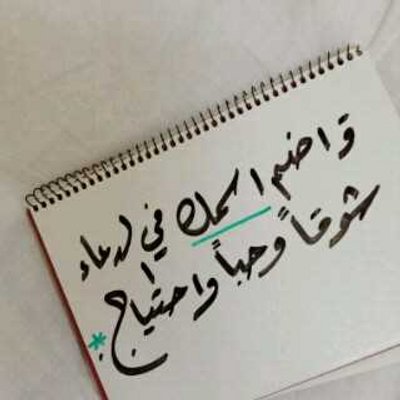 و اضم اسمك في لدعاء
شوقاً وحباً واحتياج